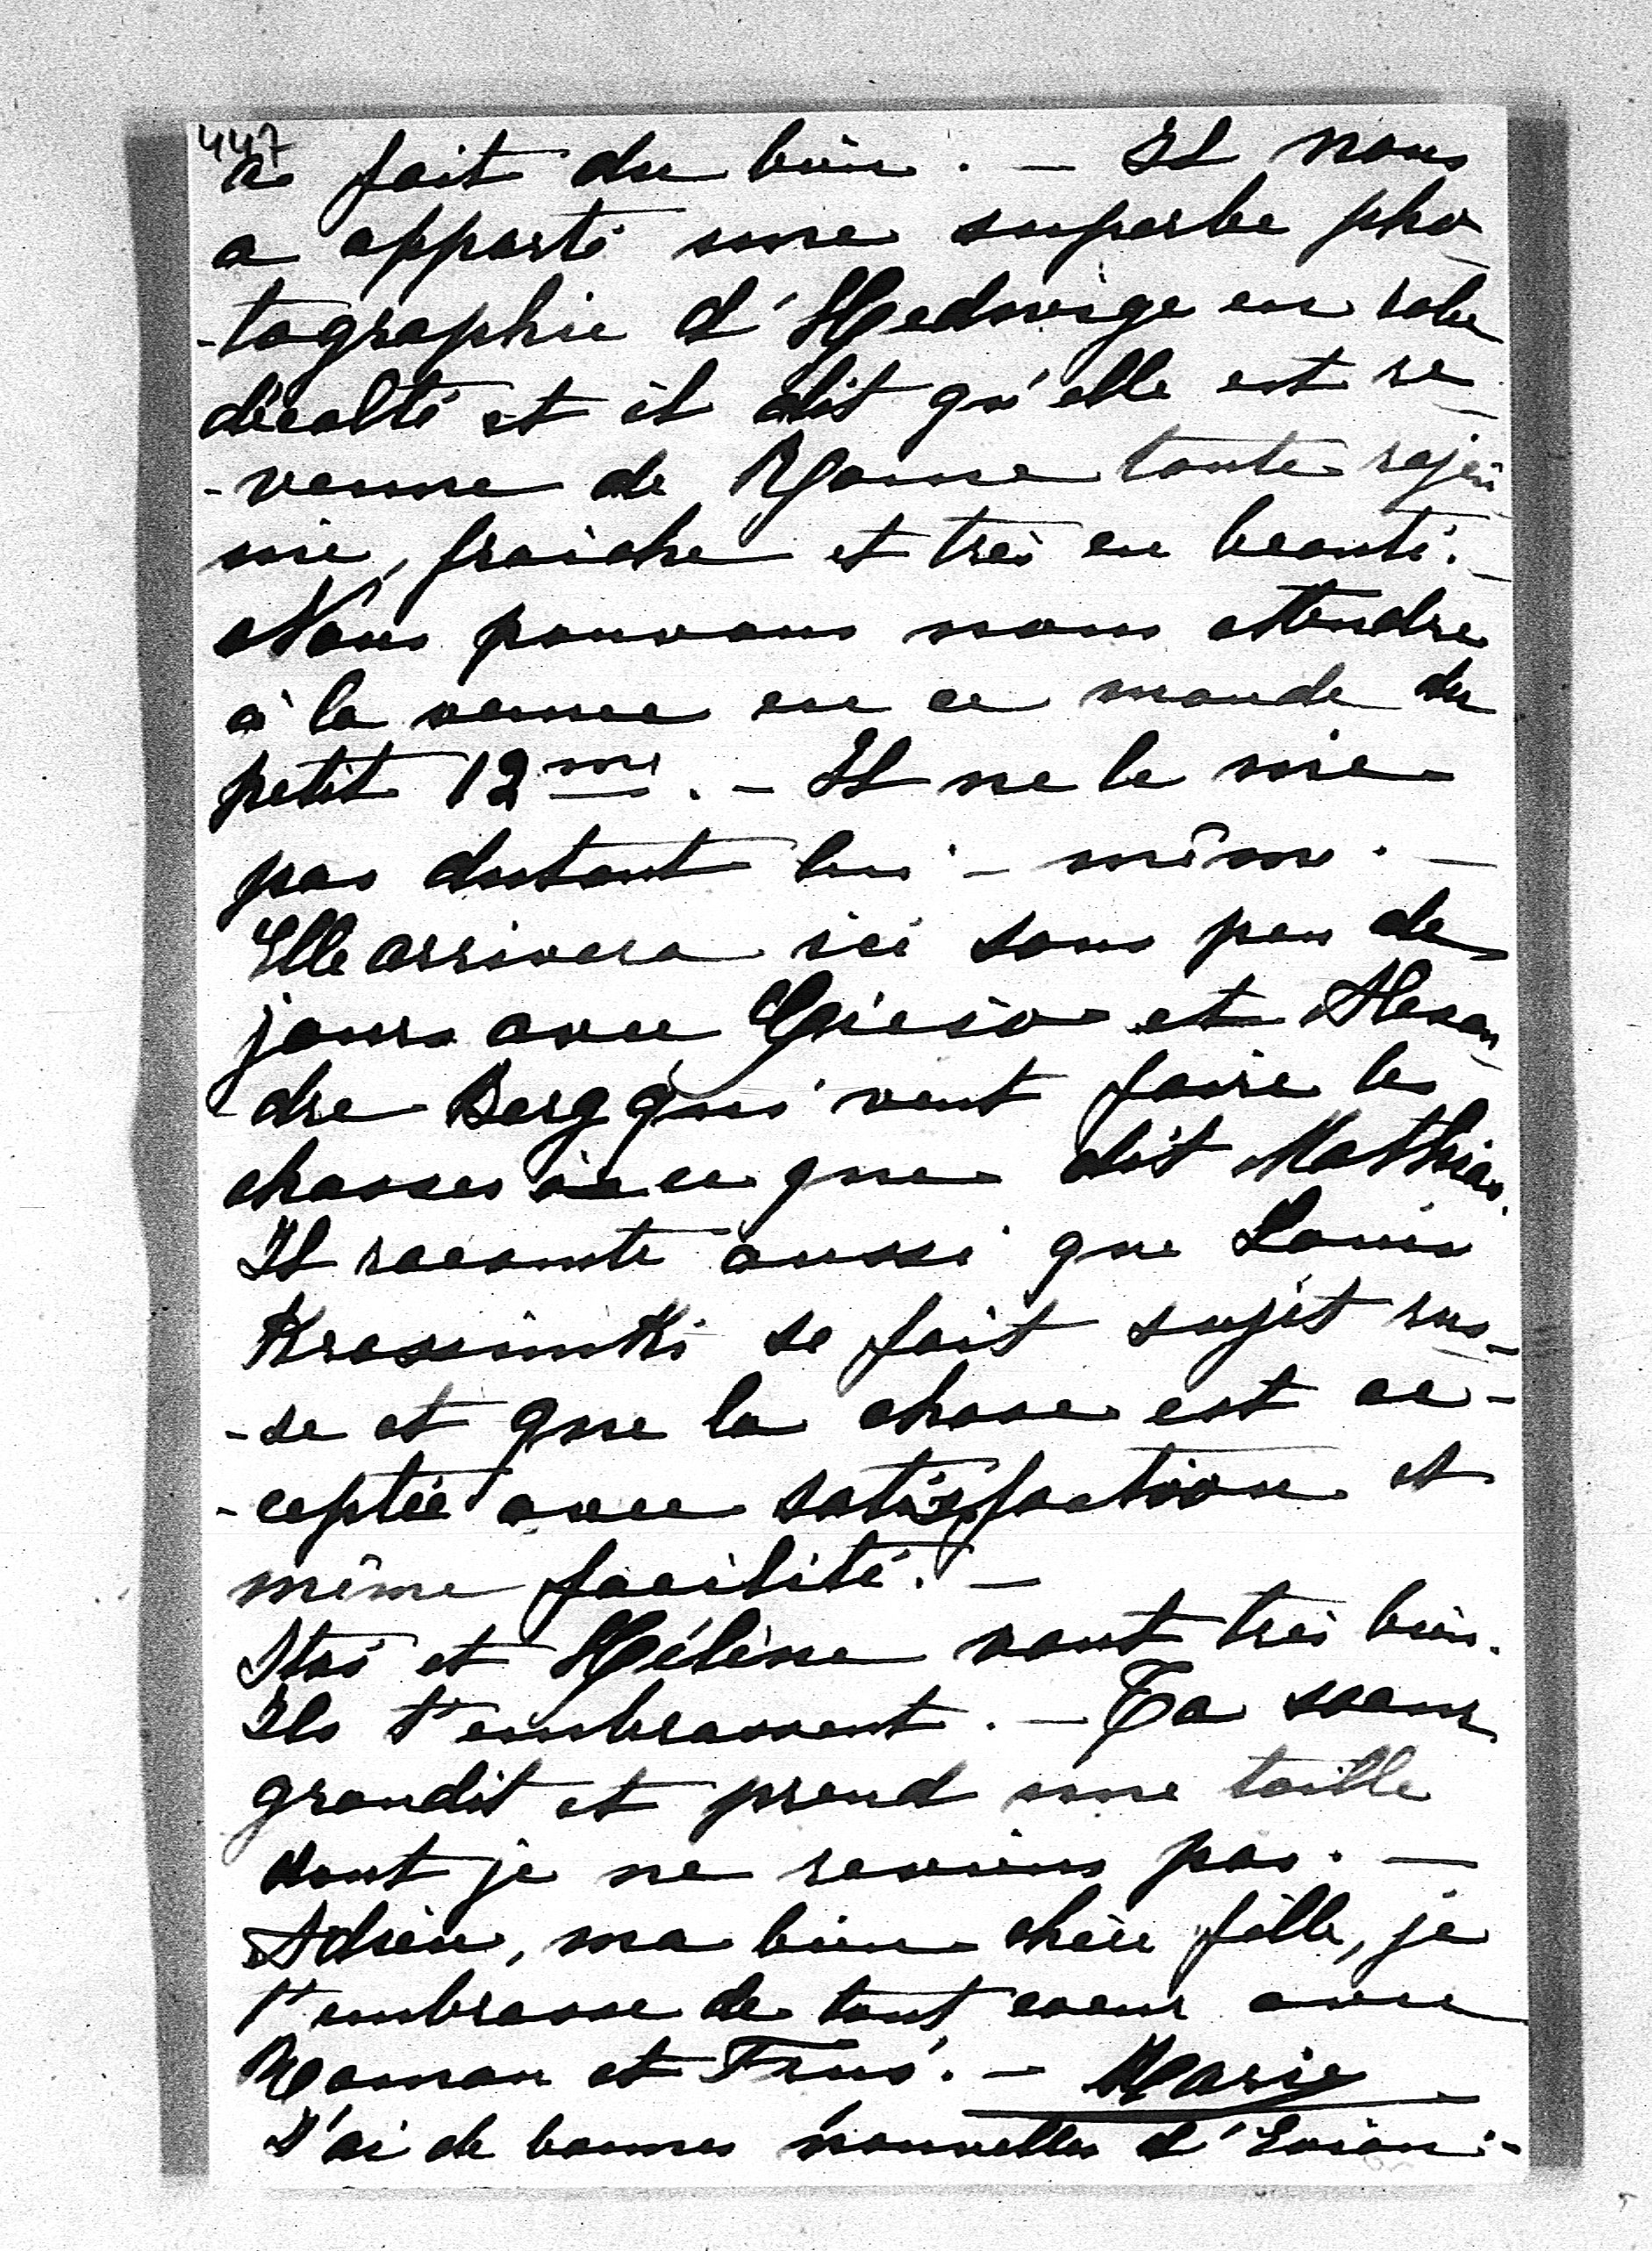 447
a fait du bien. — Il nous
a apporté une superbe pho
-tographie d'Hedwige en robe
décolté et il dit qu'elle est re-
-venue de Rome toute rajeu
nie, fraiche et très en beauté. —
Nous pouvons nous attendre
à la venue en ce monde du
petit 12me. — Il ne le nie
pas dutout lui-même. —
Elle arrivera ici sous peu de
jours avec et Alexan
dre Berg qui veut faire les
chasses à ce que dit Mathias.
Il raconte aussi que Louis
Krassinski se fait sujet rus-
-se et que la chose est ac-
-ceptée avec satisfaction et
même facilité. —
et Hélène vont très bien.
Ils t'embrassent. — Ta soeur
grandit et prend une taille
dont je ne reviens pas. —
Adieu, ma bien chère fille, je
t'embrasse de tout coeur avec
Roman et — Marie
J'ai de bonnes nouvelles d'Evian. -